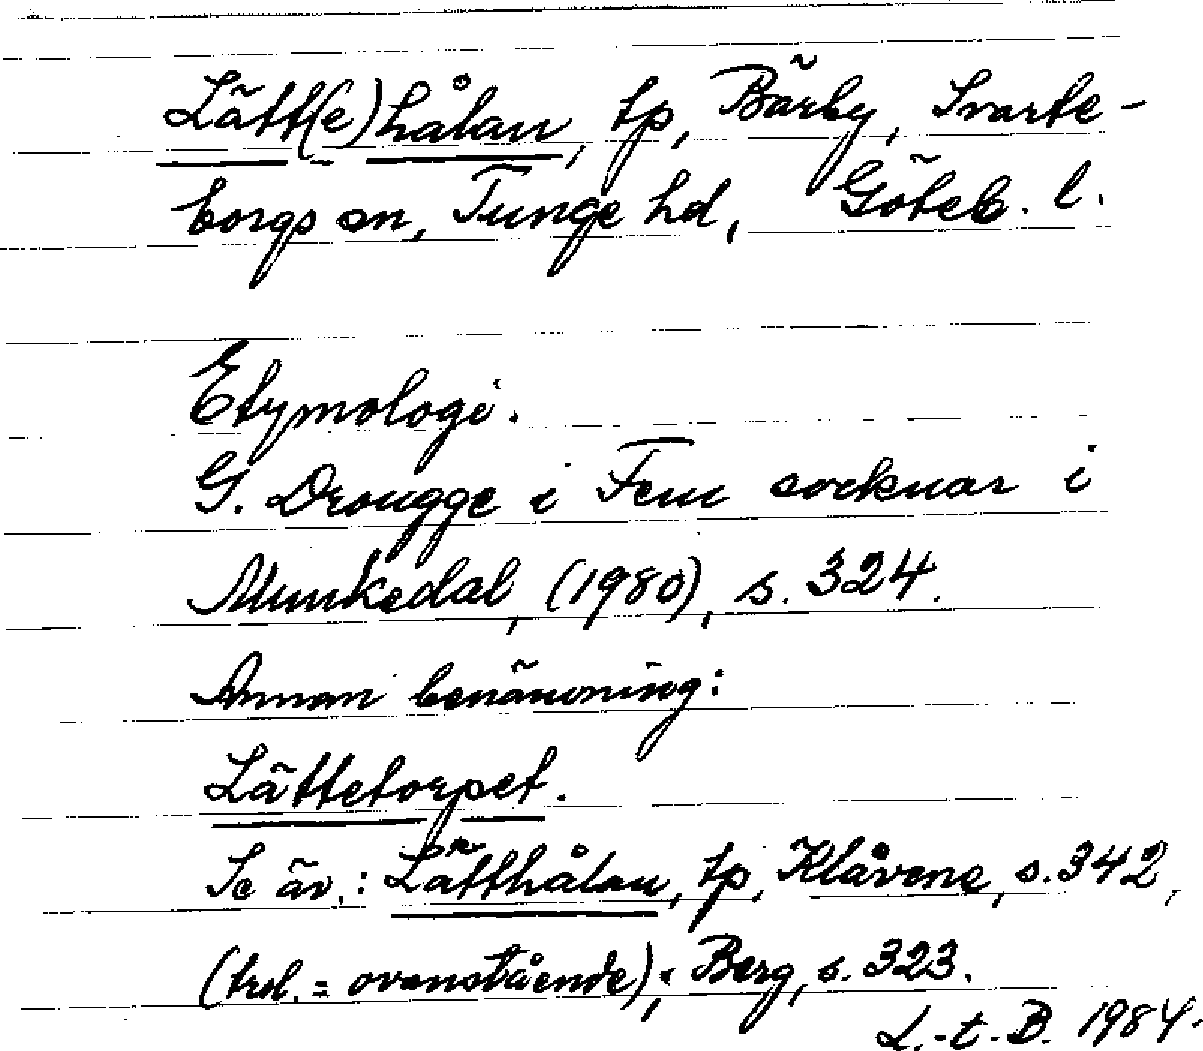 Lätt(e)hålan, tp, Bärby, Svarte-
borgs sn, Tunge hd, Göteb. l.
Etymologi.
G. Drougge i Fem socknar i
Munkedal, (1980), s. 324.
Annan benämning:
Lättetorpet.
Se äv.: Lätthålan, tp, Klåvene, s. 342,
(trol. = ovanstående); Berg, s. 323.
L.-t.-B. 1984.